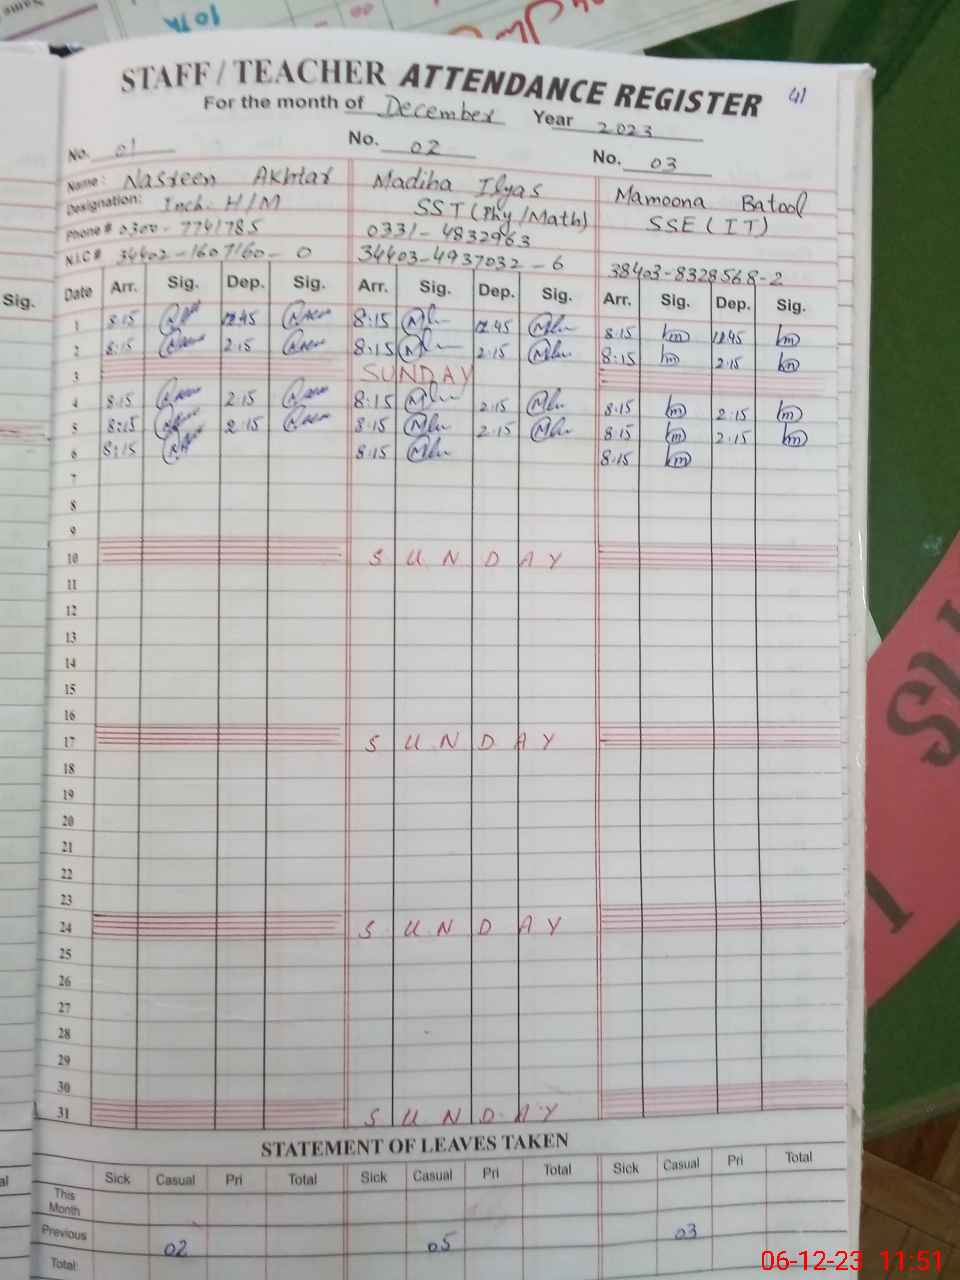 10th
STAFF / TEACHER ATTENDANCE REGISTER 41
For the month of December Year 2023
No. 01 No. 02 No. 03
Name: Nasreen Akhtar Madiha Ilyas Mamoona Batool
Designation: Inch. H/M SST (Phy/Math) SSE (IT)
Phone # 0300-7741785 0331-4832963
N.I.C # 34402-1607160-0 34403-4937032-6 38403-8328568-2
Sig. Date Arr. Sig. Dep. Sig. Arr. Sig. Dep. Sig. Arr. Sig. Dep. Sig.
1 8:15 12.45 8:15 12.45 8:15 12.45
2 8:15 2.15 8:15 2.15 8:15 2.15
3 SUNDAY
4 8:15 2.15 8:15 2.15 8:15 2:15
5 8:15 2.15 8:15 2.15 8:15 2.15
6 8:15 8:15 8.15
7
8
9
10 SUNDAY
11
12
13
14
15
16
17 SUNDAY
18
19
20
21
22
23
24 SUNDAY
25
26
27
28
29
30
31 SUNDAY
STATEMENT OF LEAVES TAKEN
Sick Casual Pri Total Sick Casual Pri Total Sick Casual Pri Total
This Month
Previous 02 05 03
Total
06-12-23 11:51